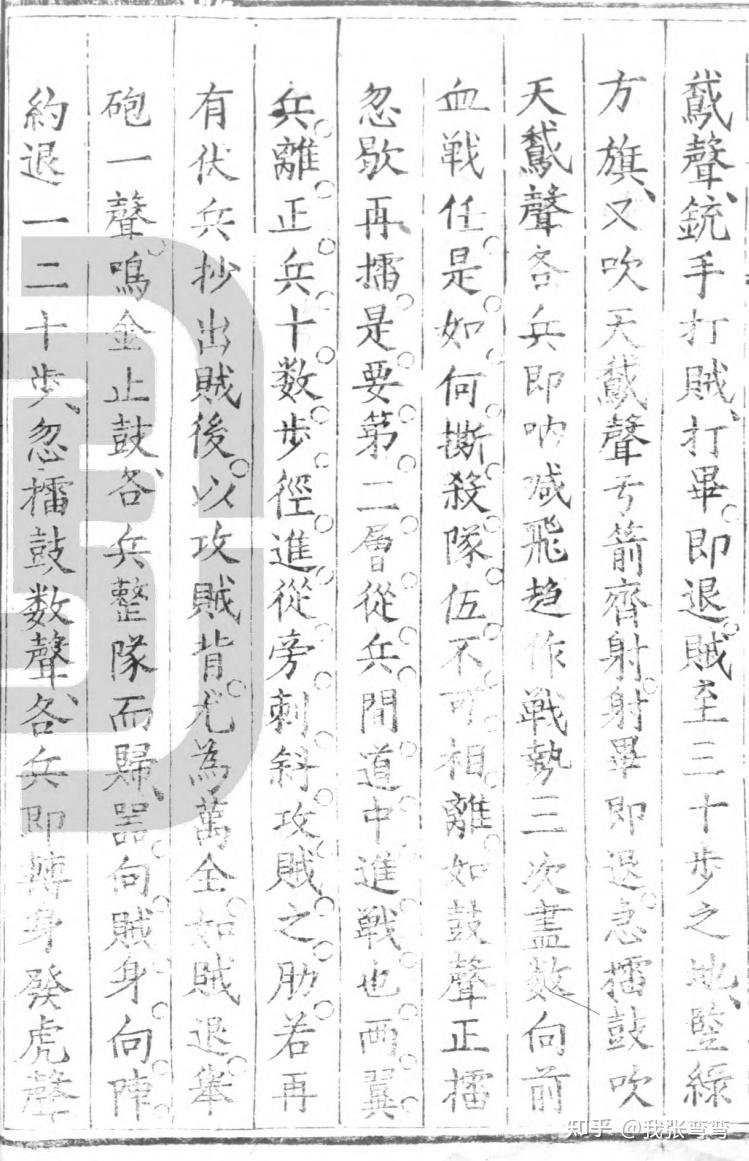 鵞聲、銃手打賊、打畢、即退。賊至三十步之地、竪綠
方旗、又吹天鵞聲弓箭齊射。射畢即退。急擂鼓吹
天鵞聲各兵即吶喊飛趕作戰勢三次盡數向前
血戰任是如何撕殺隊伍不可相離如鼓聲正擂
忽歇再擂是要第二層從兵間道中進戰也兩翼
兵離正兵十数步徑進從旁刺斜攻賊之肋若再
有伏兵抄出賊後。以攻賊背。尤為萬全。如賊退。舉
砲一聲。鳴金止鼓、各兵整隊而歸、器向賊身向陣
約退一二十步、忽擂鼓数聲、各兵即轉身發虎聲
知乎 @我张弯弯